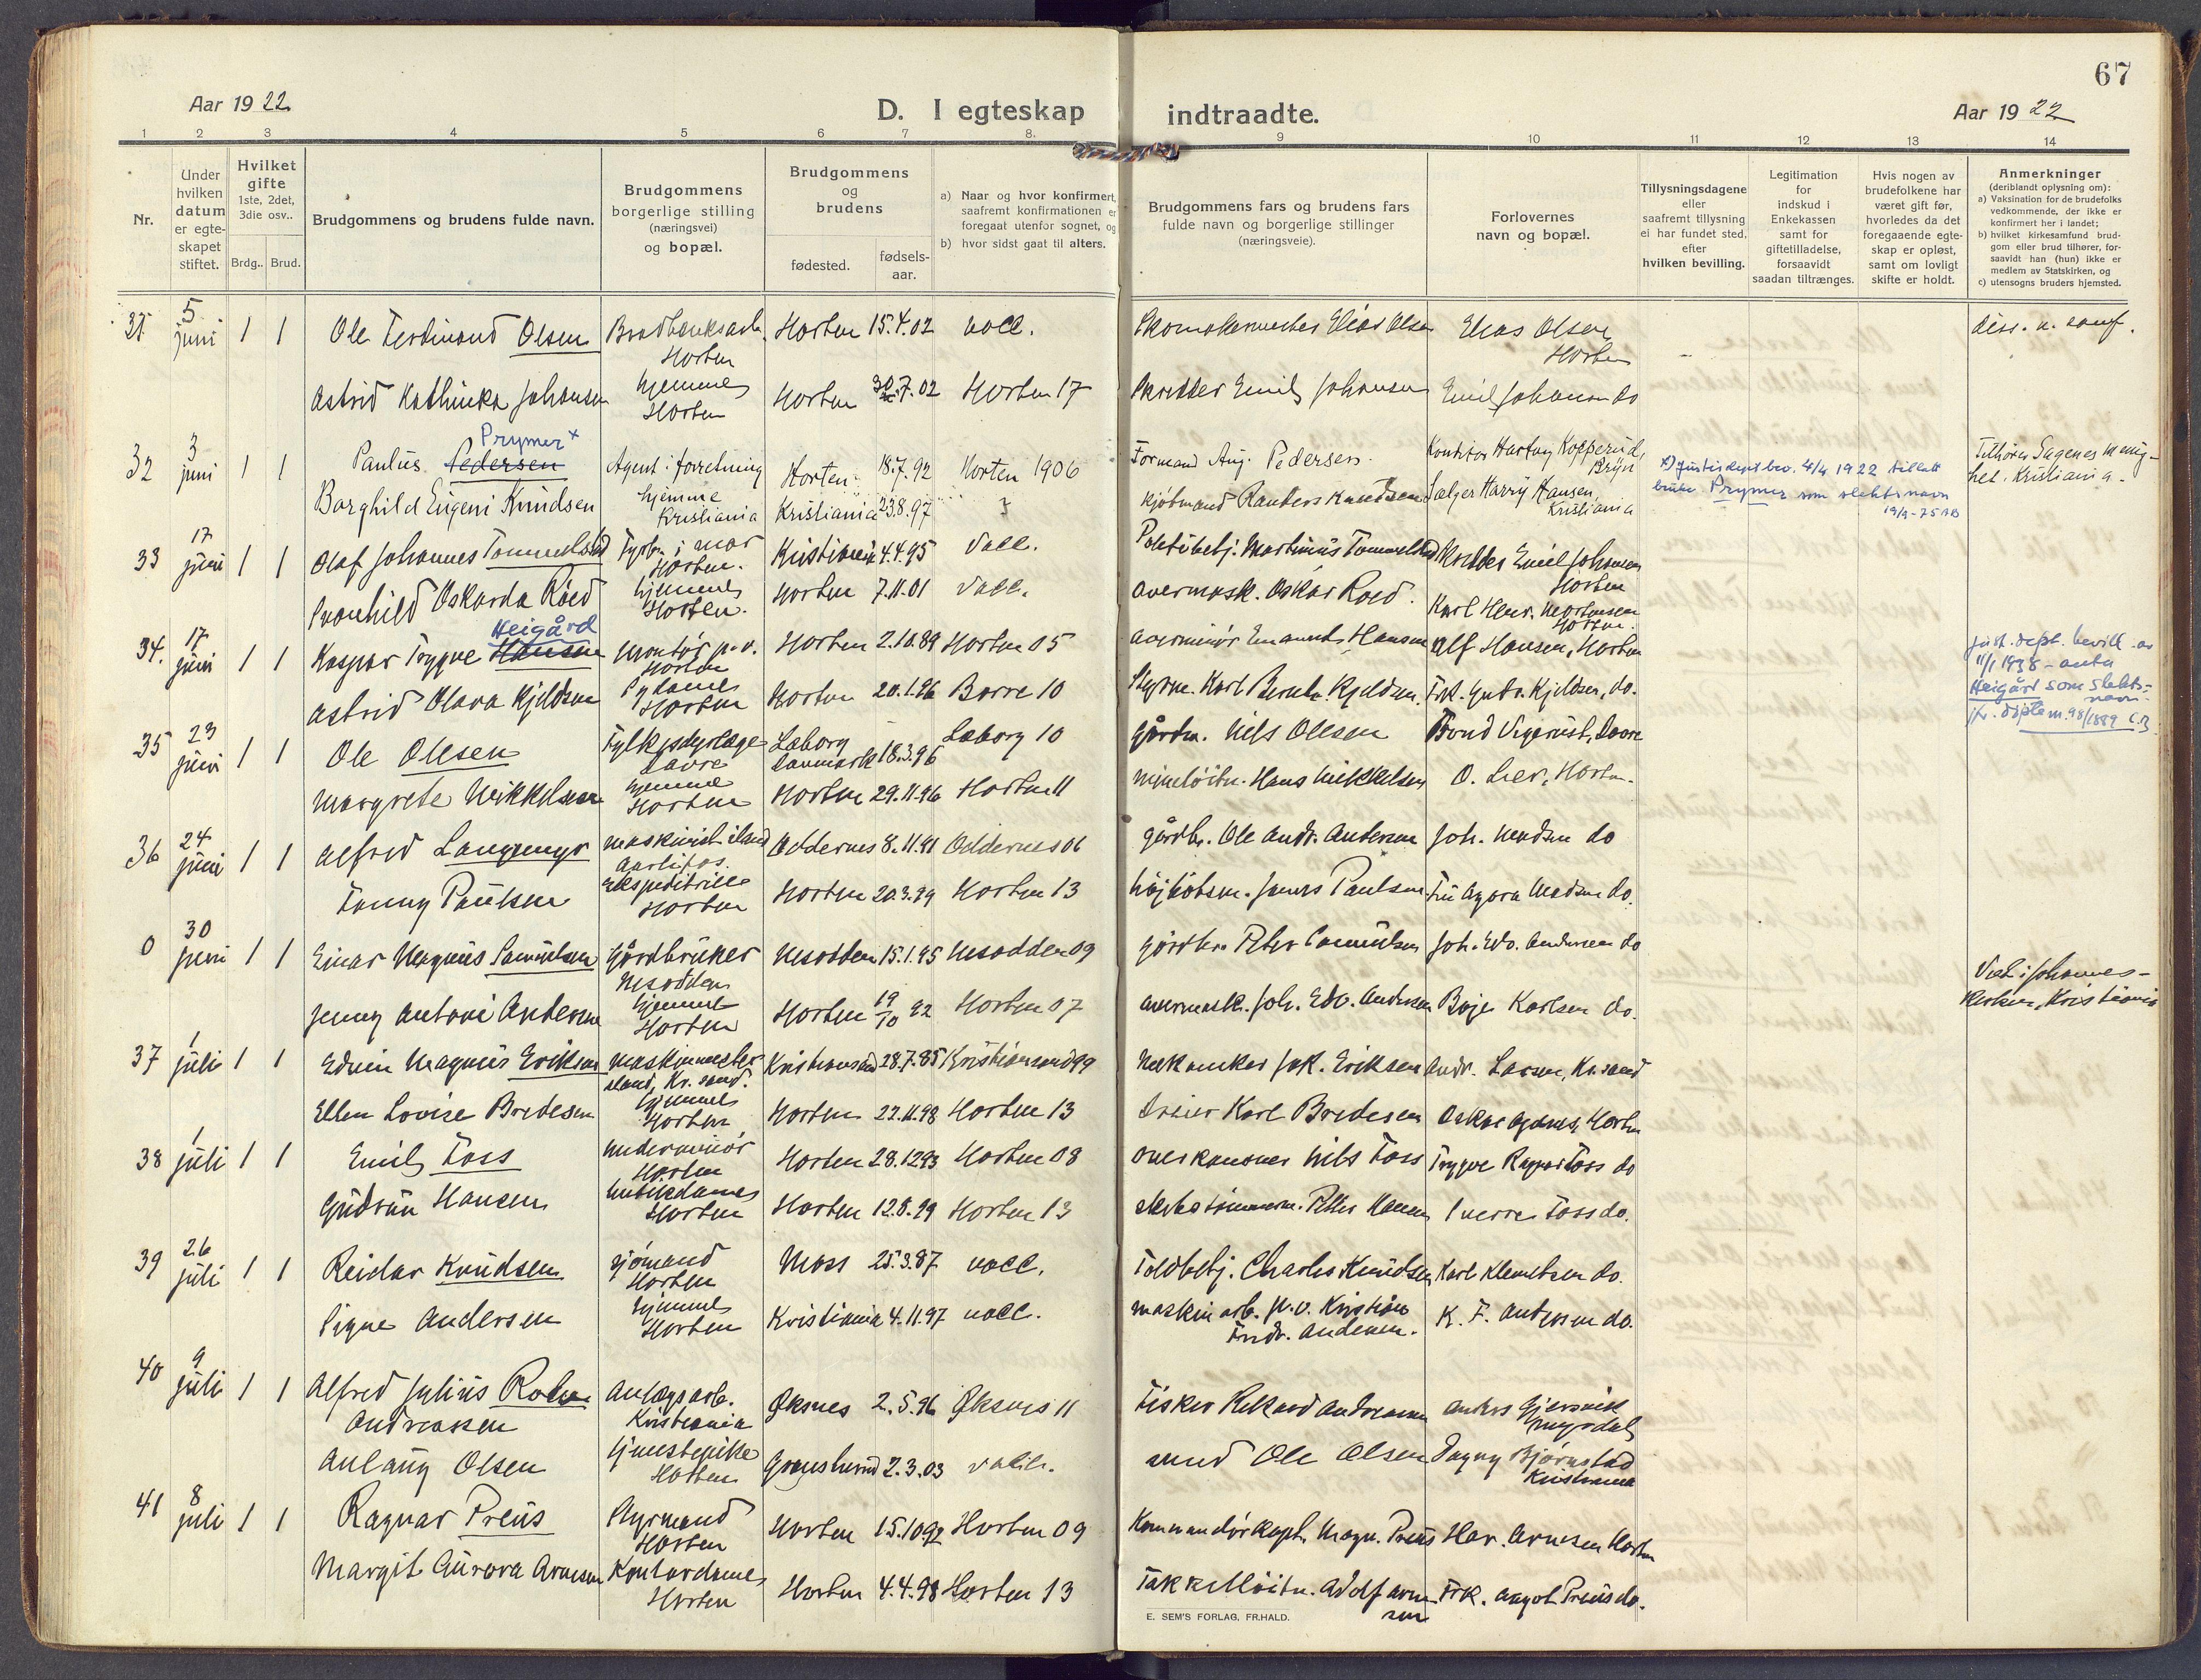 67
Aar 1922
D. I egteskap indtraadte.
Aar 1922
1 2 3 4 5 6 7 8. 9 10 11 12 13 14
Nr.
Under hvilken datum er egteskapet stiftet.
Hvilket gifte 1ste, 2det, 3die osv..
Brdg.. Brud.
Brudgommens og brudens fulde navn.
Brudgommens borgerlige stilling (næringsvei) og bopæl.
Brudgommens og brudens
fødested.
fødselsaar.
a) Naar og hvor konfirmert, saafremt konfirmationen er foregaat utenfor sognet, og
b) hvor sidst gaat til alters.
Brudgommens fars og brudens fars fulde navn og borgerlige stillinger (næringsveie).
Forlovernes navn og bopæl.
Tillysningsdagene eller saafremt tillysning ei har fundet sted, efter hvilken bevilling.
Legitimation for indskud i Enkekassen samt for giftetilladelse, forsaavidt saadan tiltrænges.
Hvis nogen av brudefolkene har været gift før, hvorledes da det foregaaende egteskap er opløst, samt om lovligt skifte er holdt.
Anmerkninger (deriblandt oplysning om):
a) Vaksination for de brudefolks vedkommende, der ikke er konfirmert her i landet;
b) hvilket kirkesamfund brudgom eller brud tilhører, forsaavidt han (hun) ikke er medlem av Statskirken, og
c) utensogns bruders hjemsted.
31 5 juni 1 1 Ole Ferdinand Olsen Horten 15.4.02 vacc. Skomakermester Elias Olsen Elias Olsen Horten diss. u. samf.
Horten
Astrid Kathinka Johansen hjemme Horten Horten 30.7.02 Horten 17 Skredder Emil Johansen Emil Johansen do
Prymer x
32 3 juni 1 1 Paulus Pedersen Agent i forretning Horten 18.7.92 Horten 1906 Formand Aug. Pedersen Kontorist Hartvig Kopperud, Bryn x) Justisdept bev. 4/4 1922 tillatt bruke Prymer som slektsnavn 19/9-75 Tilhører Sagenes menighet, Kristiania.
Borghild Eugeni Knudsen hjemme Kristiania Kristiania 23.8.97 Kjøbmand Randers Knudsen Sælger Harry Hansen, Kristiania
33 17 juni 1 1 Olaf Johannes Tommelstad Fyrb. i mar Horten. Kristiania 4.4.95 vacc. Politibetj. Martinius Tommelstad Skredder Emil Johansen Horten
Svanhild Oskarda Röed hjemme Horten. Horten 7.11.01 vacc. Overmask. Oskar Roed. Karl Henr. Mortensen Horten.
Heigård
34. 17 juni 1 1 Kaspar Trygve Hansen Montør p.v. Horten Horten 2.10.89 Horten 05 Overminør Emanuel Hansen Alf Hansen, Horten Just. dept. bevill. av 11/1 1938 – anta Heigård som slektsnavn.
Astrid Olava Kjeldsen Sydame Horten Horten 20.1.96 Borre 10 Styrm. Karl Bernh. Kjeldsen. Frk. Gudr. Kjeldsen, do.
35 23 juni 1 1 Ole Olesen Fylkesdyrlæge Laborg Danmark 18.3.96 Laborg 10 gårdm. Nils Olesen Trond Vigerust, Dovre
Margrete Mikkelsen hjemme Horten Horten 29.11.96 Horten 11 mineløitn. Hans Mikkelsen O. Lier, Horten.
36 24 juni 1 1 Alfred Langemyr maskinist iland Oddernes 8.11.91 Oddernes 06 gårdbr. Ole Andr. Andersen Joh. Madsen do
Fanny Paulsen Ekspeditrise Horten Horten 20.3.99 Horten 13 Paulsen Fru Agora Madsen do.
0 30 juni 1 1 Einar Magnus Samuelsen Gårdbruker Nesodden Nesodden 15.1.95 Nesodden 09 gårdbr. Peter Samuelsen Joh. Edv. Andersen do Viet i Johanneskirken, Kristiania
Jenny Antoni Andersen hjemme Horten Horten 19/10 92 Horten 07 overmask. Joh. Edv. Andersen Birger Karlsen do.
37 1 juli 1 1 Edvin Magnus Eriksen Maskinmester iland, Kr.sand. Kristiansand 28.7.85 Kristiansand 99 Mekaniker Jak. Eriksen Andr. Larsen, Kr.sand
Ellen Lovise Bredesen hjemme Horten Horten 22.11.98 Horten 13 Dreier Karl Bredesen Horten
38 1 juli 1 1 Emil Foss Underminør Horten Horten 28.12.93 Horten 08 Overkanoner Nils Foss Trygve Foss do
Gudrun Hansen Butikdame Horten Horten 12.8.99 Horten 13 tømmerm. Petter Hansen Sverre Foss do.
39 26 juli 1 1 Reidar Knudsen sjømand Horten Moss 25.3.87 vacc. Toldbetj. Charles Knudsen Karl Klemetsen do.
Signe Andersen hjemme Horten Kristiania 4.11.97 vacc. maskinarb. p.v. Kristian Fredr. Andersen. K. F. Andersen do.
40 9 juli 1 1 Alfred Julius Andreassen Anlægsarb. Kristiania Øksnes 2.5.96 Øksnes 11 Fisker Rikard Andreassen
Anlaug Olsen tjenestepike Horten 2.3.03 Ole Olsen Dagny Bjørnstad Kristiania
41 8 juli 1 1 Ragnar Preus Styrmand Horten Horten 15.10.92 Horten 09 Kommandørkapt. Magn. Preus Har. Arnesen Horten
Margit Aurora Arnesen Kontordame Horten Horten 4.4.98 Horten 13 Takkelløitn. Adolf Arnesen Frk. Aagot Preus do.
E. SEM'S FORLAG, FR.HALD.